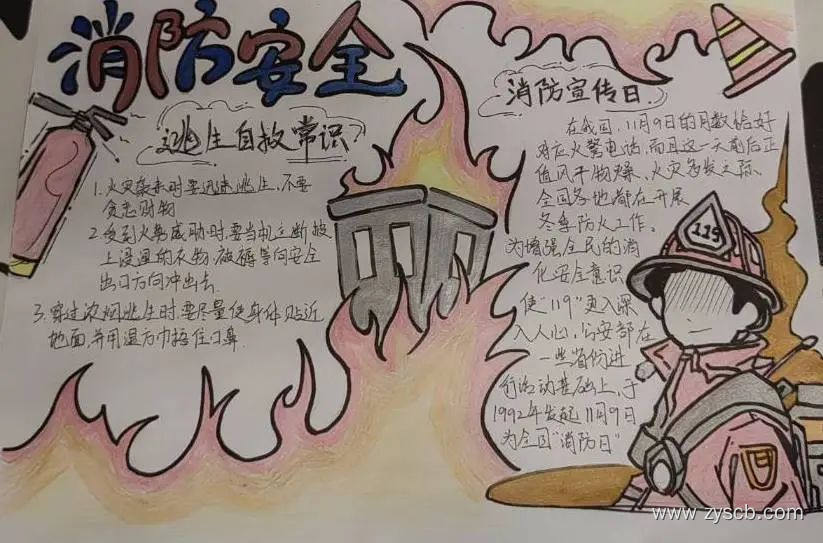 消防安全
逃生自救常识
1.火灾袭来时要迅速逃生,不要
贪恋财物
2.受到火势威胁时,要当机立断披
上浸湿的衣物、被褥等向安全
出口方向冲出去.
3.穿过浓烟逃生时,要尽量使身体贴近
地面,并用湿方巾捂住口鼻.
消防宣传日.
在我国,11月9日的月数恰好
对应火警电话,而且这一天前后正
值风干物燥、火灾多发之际.
全国各地都在开展
冬季防火工作。
为增强全民的消
化安全意识
使“119”更入深
入人心,公安部在
一些省份进
行活动基础上,于
1992年发起11月9日
为全国“消防日”
119
www.zyscb.com